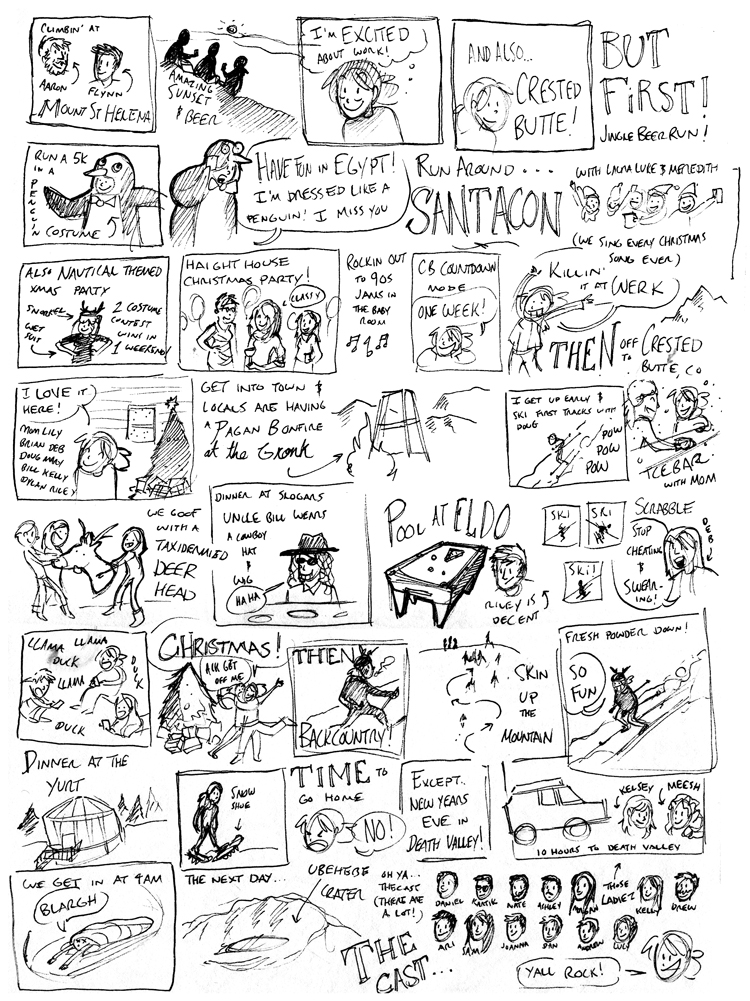 CLIMBIN' AT
AARON
FLYNN
MOUNT ST HELENA
AMAZING
SUNSET
& BEER
I'M EXCITED
ABOUT WORK!
AND ALSO...
CRESTED
BUTTE!
BUT
FIRST!
JINGLE BEER RUN!
RUN A 5K
IN A
PENGUIN
COSTUME
HAVE FUN IN EGYPT!
I'M DRESSED LIKE A
PENGUIN! I MISS YOU
RUN AROUND...
SANTACON
WITH LAURA LUKE & MEREDITH
(WE SING EVERY CHRISTMAS
SONG EVER)
ALSO NAUTICAL THEMED
XMAS PARTY
SNORKEL
WET
SUIT
2 COSTUME
CONTEST
WINS IN
1 WEEKEND!
HAIGHT HOUSE
CHRISTMAS PARTY!
CLASSY
ROCKIN OUT
TO 90S
JAMS IN
THE BABY
ROOM
CB COUNTDOWN
MODE
ONE WEEK!
KILLIN'
IT AT WERK
THEN OFF TO CRESTED
BUTTE, CO
I LOVE IT
HERE!
MOM LILY
BRIAN DEB
DOUG MARY
BILL KELLY
DYLAN RILEY
GET INTO TOWN &
LOCALS ARE HAVING
A PAGAN BONFIRE
at the Gronk
I GET UP EARLY &
SKI FIRST TRACKS WITH
DOUG
POW
POW
POW
ICEBAR
WITH MOM
WE GOOF
WITH A
TAXIDERMIED
DEER
HEAD
DINNER AT SLOGARS
UNCLE BILL WEARS
A COWBOY
HAT
&
WIG
HAHA
POOL AT ELDO
RILEY IS
DECENT
SKI
SKI
SKI
SCRABBLE
STOP
CHEATING
&
SWEAR-
ING!
DEB
LLAMA LLAMA
DUCK
LLAMA
DUCK
DUCK
CHRISTMAS!
AIK GET
OFF ME
THEN
BACKCOUNTRY!
SKIN
UP
THE
MOUNTAIN
FRESH POWDER DOWN!
SO
FUN
DINNER AT THE
YURT
SNOW
SHOE
TIME TO
GO HOME
NO!
EXCEPT..
NEW YEARS
EVE IN
DEATH VALLEY!
KELSEY
MEESH
10 HOURS TO DEATH VALLEY
WE GET IN AT 4AM
BLARGH
THE NEXT DAY...
UBEHEBE
CRATER
OH YA...
THE CAST
(THERE ARE
A LOT!)
THE
CAST...
DANIEL
KARTIK
NATE
ASHLEY
MEGAN
THOSE
LADIEZ
KELLY
DREW
ARI
SAM
JOANNA
DAN
ANDREW
LUCY
YALL ROCK!